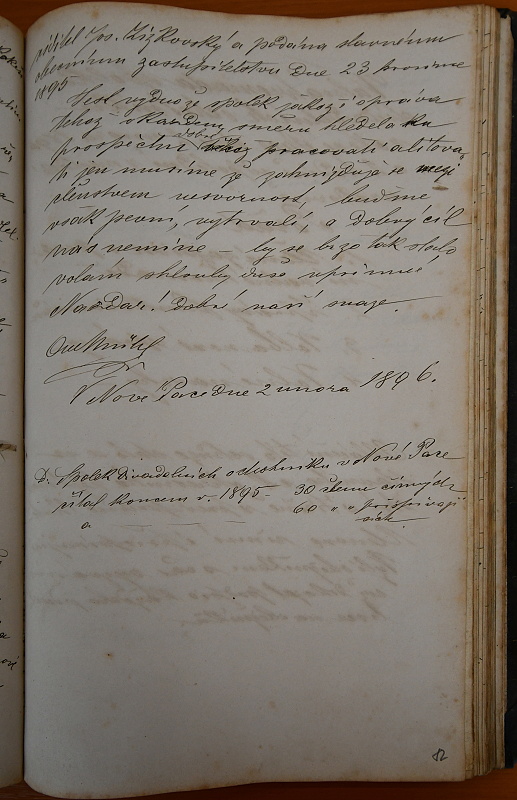 ředitel Jos. Žižkovský a podána slavnému
obecnímu zastupitelstvu dne 23 prosince
1895
Jest vždno že spolek jakož i správa
téhož v každém směru hleděla ku
dobry
prospěchu pracovati a litova
ti jen musíme že zahnizďuje se mezi
členstvem nesvornost, buďme
však pevni, vytrvalí, a dobrý cíl
nás nemine – by se brzo tak stalo
volám z hlouby duše upřímné
Nazdar! dobré naší snaze.
V Nové Pace dne 2 února 1896.
D. Spolek divadelních ochotníků v Nové Pace
čítal koncem r. 1895 – 30 členů činných
a 60 " " přispívají
cích
82